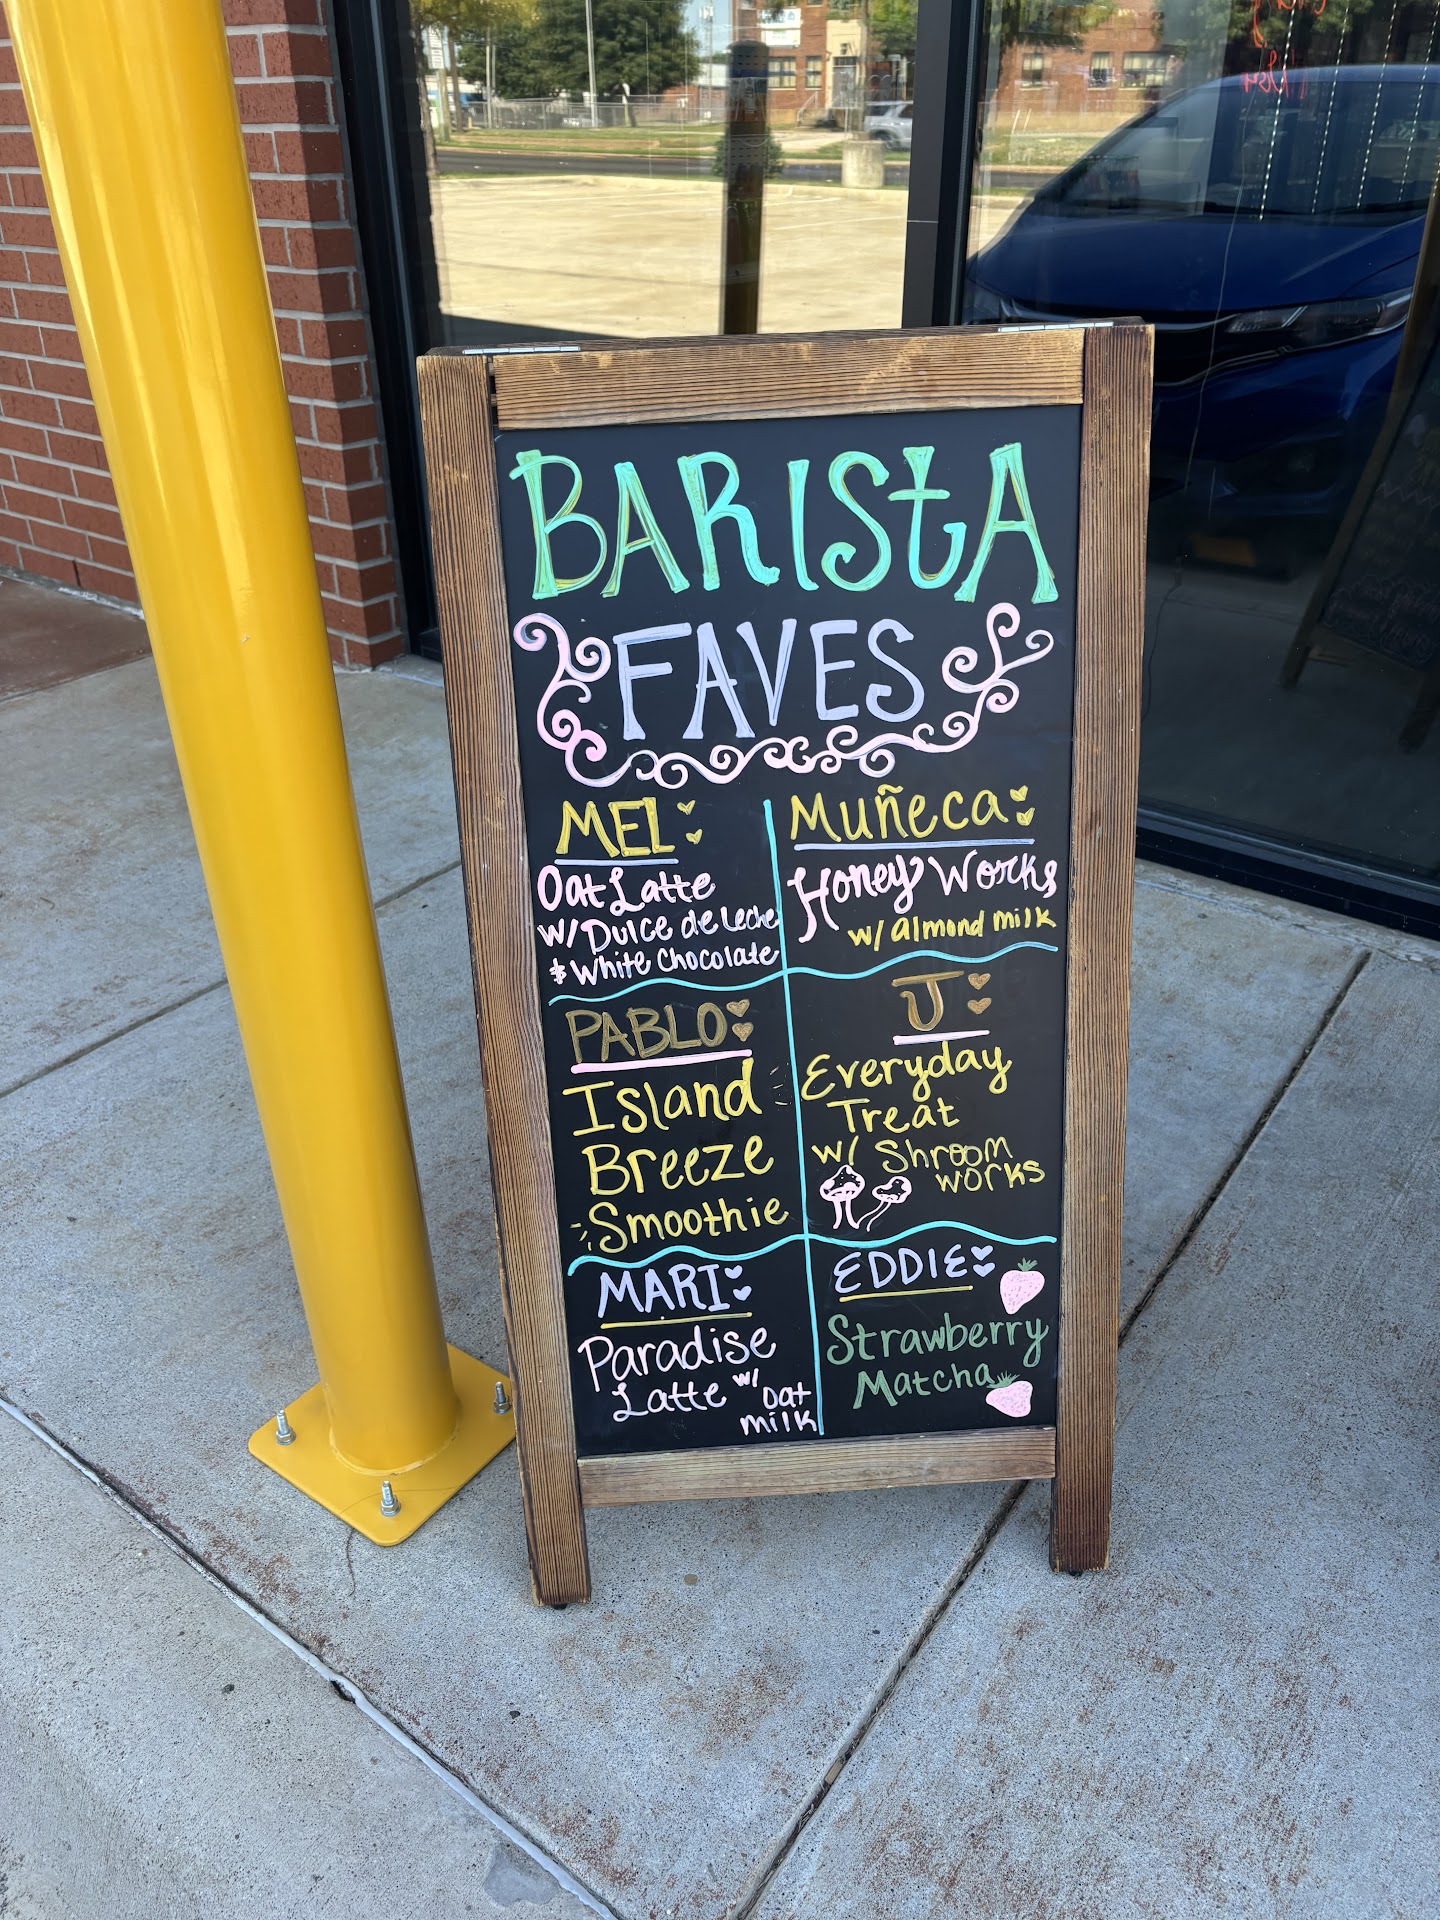 BARISTA
FAVES
MEL
Oat Latte
w/ Dulce de Leche
& White Chocolate
Muñeca
Honey Works
w/ almond milk
PABLO
Island
Breeze
Smoothie
J
Everyday
Treat
w/ Shroom
works
MARI
Paradise
Latte w/ oat
milk
EDDIE
Strawberry
Matcha